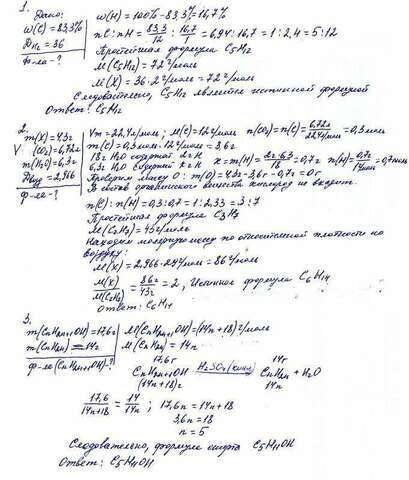 1.
Дано:
w(C) = 83,3%
D H₂ = 36
ф-ла - ?
w(H) = 100% - 83,3% = 16,7%
n C : n H = 83,3/12 : 16,7/1 = 6,94 : 16,7 = 1 : 2,4 = 5 : 12
Простейшая формула C₅H₁₂
M(C₅H₁₂) = 72 г/моль
M(X) = 36·2 г/моль = 72 г/моль
Следовательно, C₅H₁₂ является истинной формулой
Ответ: C₅H₁₂
2.
m(X) = 4,3г
V (CO₂) = 6,72л
m(H₂O) = 6,3г
Dвозд = 2,966
ф-ла - ?
Vm = 22,4 л/моль; M(C) = 12 г/моль n(CO₂) = n(C) = 6,72л/22,4 л/моль = 0,3 моль
m(C) = 0,3 моль · 12 г/моль = 3,6г
18г H₂O содержат 2г H
6,3г H₂O содержат x г H x = m(H) = 2г·6,3/18 = 0,7г n(H) = 0,7г/1г/моль = 0,7 моль
Проверим массу O: m(O) = 4,3г - 3,6г - 0,7г = 0г
В состав органического вещества кислород не входит.
n(C) : n(H) = 0,3 : 0,7 = 1 : 2,33 = 3 : 7
Простейшая формула C₃H₇
M(C₃H₇) = 43 г/моль
Находим молярную массу по относительной плотности по
воздуху:
M(X) = 2,966·29 г/моль = 86 г/моль
M(X)/M(C₃H₇) = 86г/43г = 2, Истинная формула C₆H₁₄
Ответ: C₆H₁₄
3.
m(CnH2n+1OH) = 17,6г
m(CnH2n) = 14г
ф-ла (CnH2n+1OH) - ?
M(CnH2n+1OH) = (14n+18) г/моль
M(CnH2n) = 14n
17,6г 14г
CnH2n+1OH H₂SO₄(конц) CnH2n + H₂O
(14n+18)г 14n
17,6/14n+18 = 14/14n ; 17,6n = 14n+18
3,6n = 18
n = 5
Следовательно, формула спирта C₅H₁₁OH
Ответ: C₅H₁₁OH